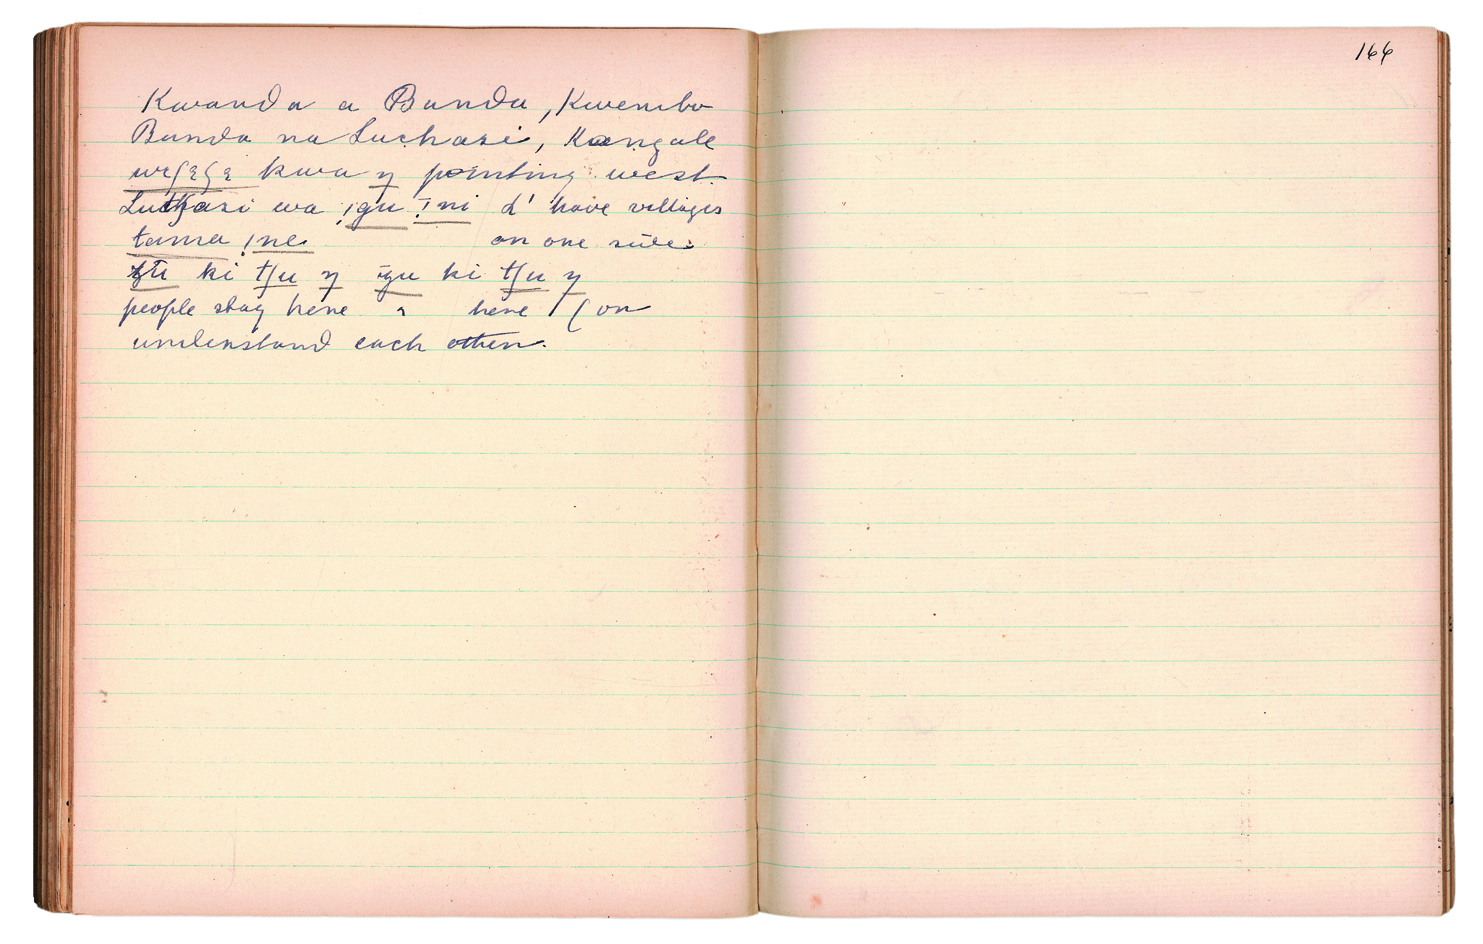 166
Kwanda a Bunda, Kwembo
Bunda na Luchasi, Kangale
kwa ŋ pointing west
Luchazi wa !gu !ni d' have villages
tama !ne. on one side.
ki tʃu ŋ gu ki tʃu ŋ
people stay here & here (on
understand each other.